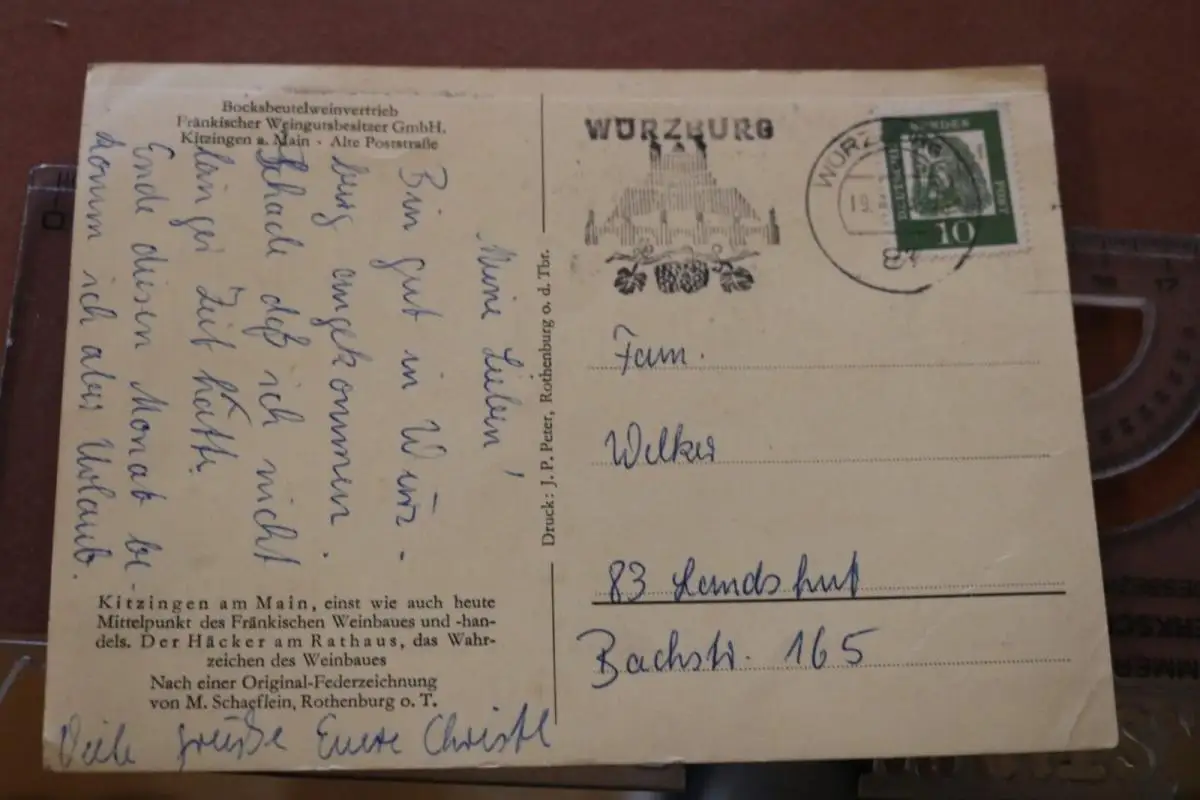 Bocksbeutelweinvertrieb
Fränkischer Weingutsbesitzer GmbH.
Kitzingen a. Main · Alte Poststraße
Meine Lieben!
Bin gut in Würz-
burg angekommen.
Schade daß ich nicht
länger Zeit hätte.
Ende diesen Monat be-
komm ich aber Urlaub.
Kitzingen am Main, einst wie auch heute
Mittelpunkt des Fränkischen Weinbaues und -han-
dels. Der Häcker am Rathaus, das Wahr-
zeichen des Weinbaues
Nach einer Original-Federzeichnung
von M. Schaeflein, Rothenburg o. T.
Viele Grüße Euere Christl
Druck: J. P. Peter, Rothenburg o. d. Tbr.
WÜRZBURG
WÜRZBURG
DEUTSCHE
BUNDES
POST
10
Fam.
Welker
83 Landshut
Bachstr. 165